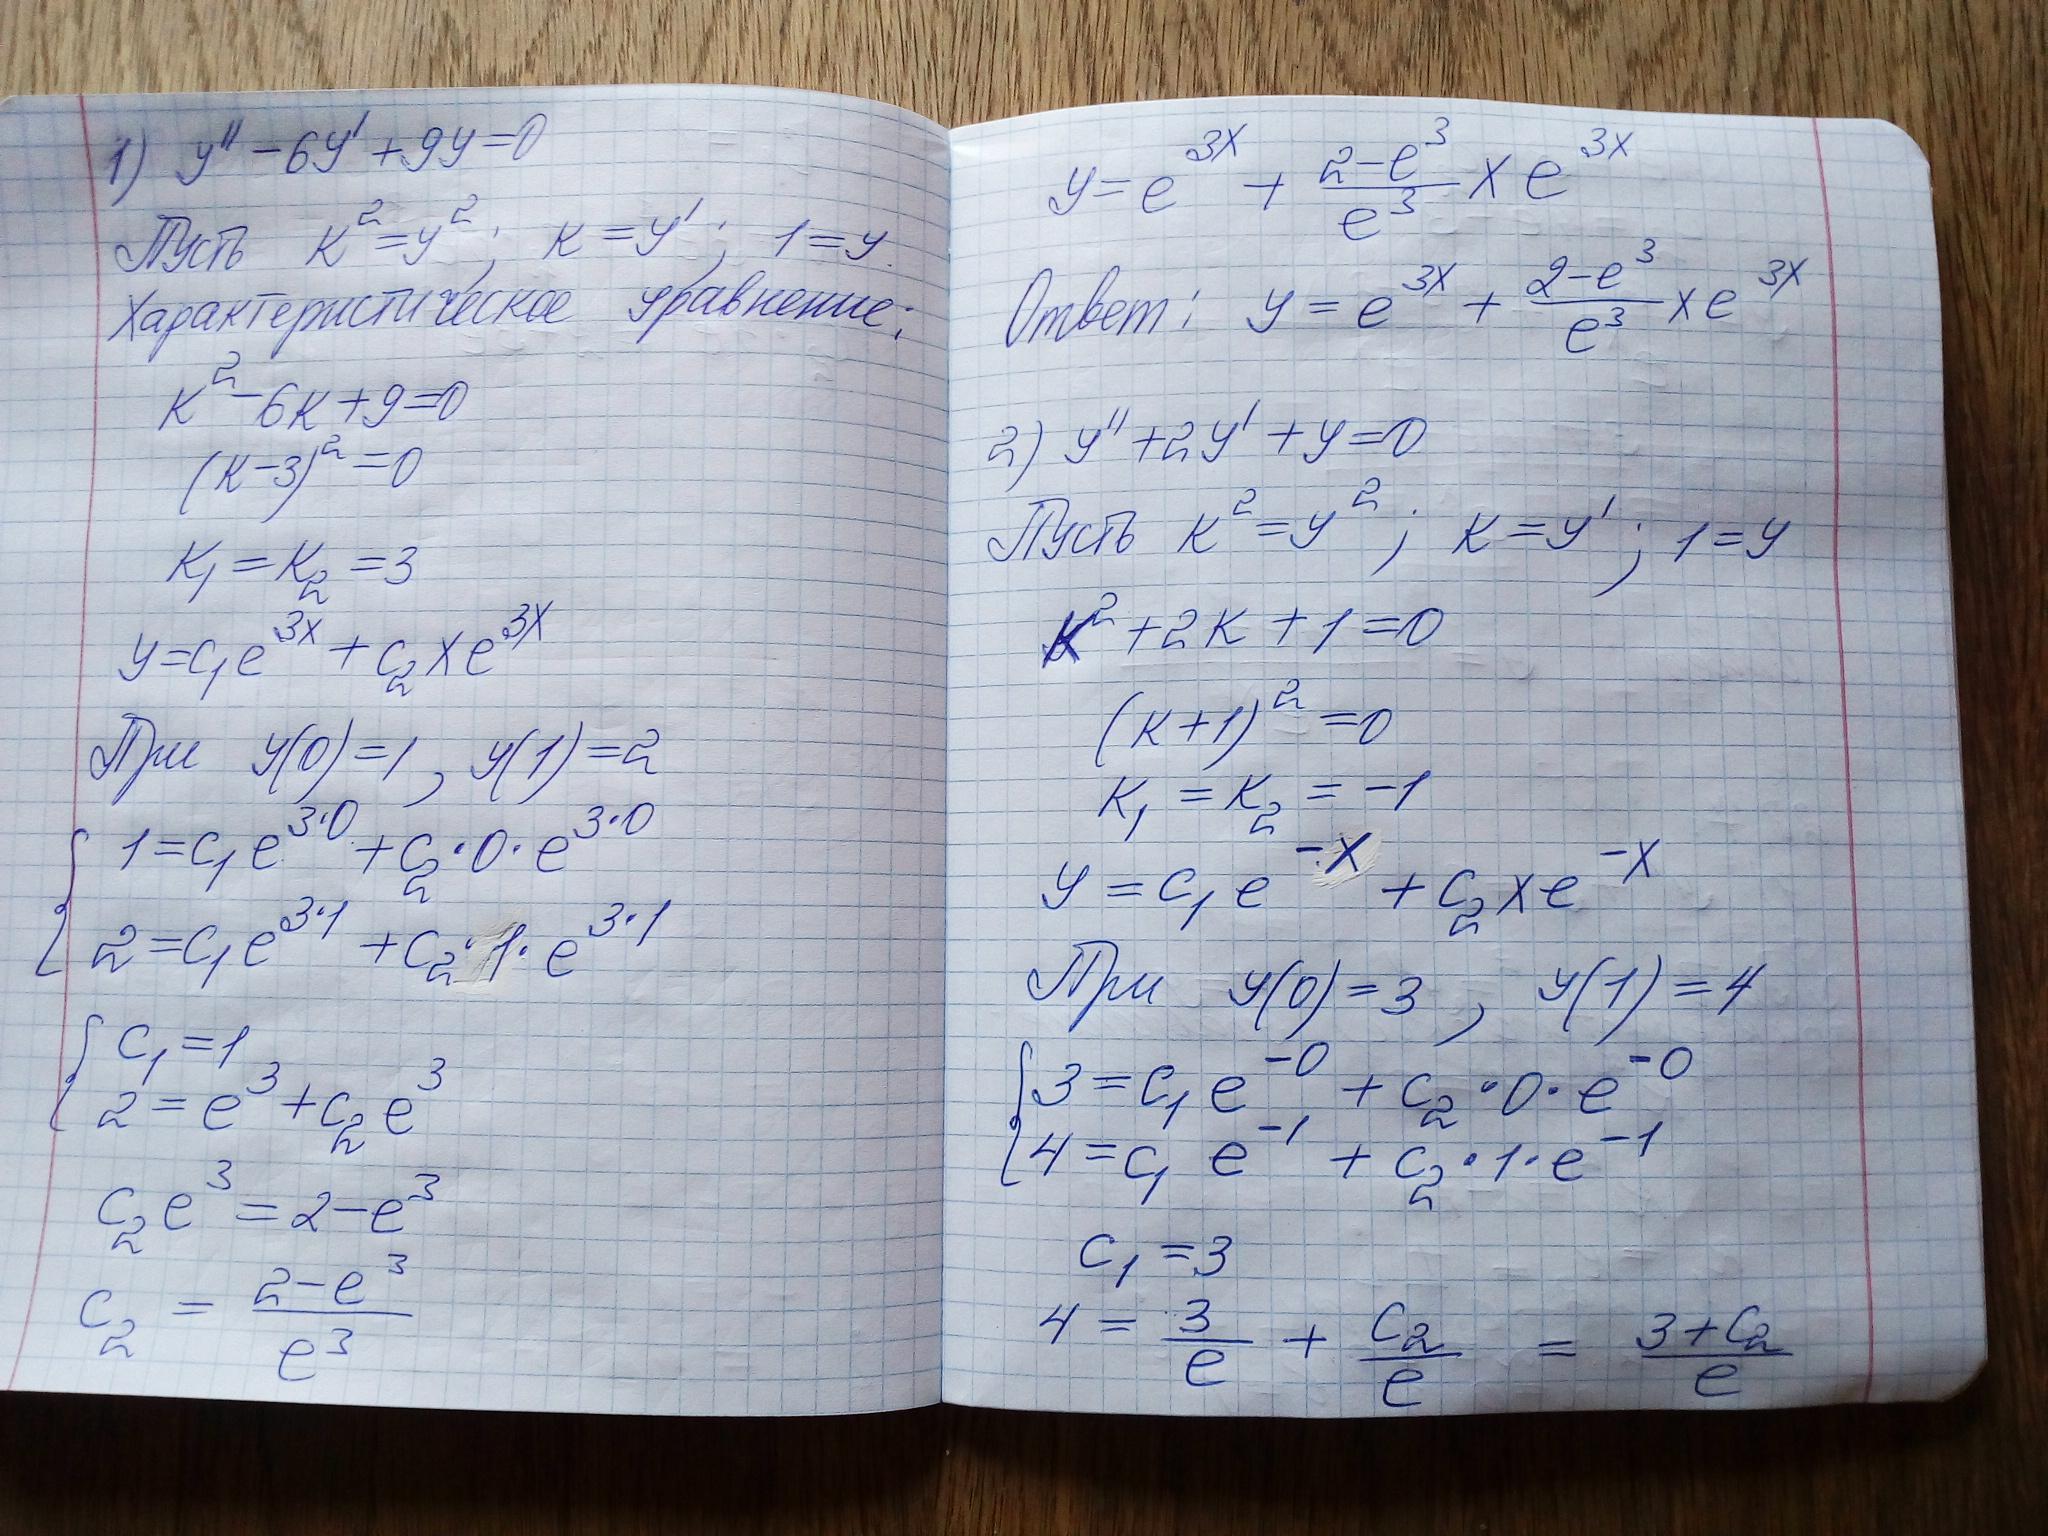 1) y'' - 6y' + 9y = 0
Пусть к² = y²; к = y'; 1 = y.
Характеристическое уравнение:
к² - 6к + 9 = 0
(к - 3)² = 0
к₁ = к₂ = 3
y = c₁e^{3x} + c₂xe^{3x}
При y(0) = 1, y(1) = 2
{ 1 = c₁e^{3·0} + c₂·0·e^{3·0}
2 = c₁e^{3·1} + c₂·1·e^{3·1}
{ c₁ = 1
2 = e³ + c₂e³
c₂e³ = 2 - e³
c₂ = \frac{2 - e³}{e³}
y = e^{3x} + \frac{2 - e³}{e³} xe^{3x}
Ответ: y = e^{3x} + \frac{2 - e³}{e³} xe^{3x}
2) y'' + 2y' + y = 0
Пусть к² = y²; к = y'; 1 = y
к² + 2к + 1 = 0
(к + 1)² = 0
к₁ = к₂ = -1
y = c₁e^{-x} + c₂xe^{-x}
При y(0) = 3, y(1) = 4
{ 3 = c₁e^{-0} + c₂·0·e^{-0}
4 = c₁e^{-1} + c₂·1·e^{-1}
c₁ = 3
4 = \frac{3}{e} + \frac{c₂}{e} = \frac{3 + c₂}{e}